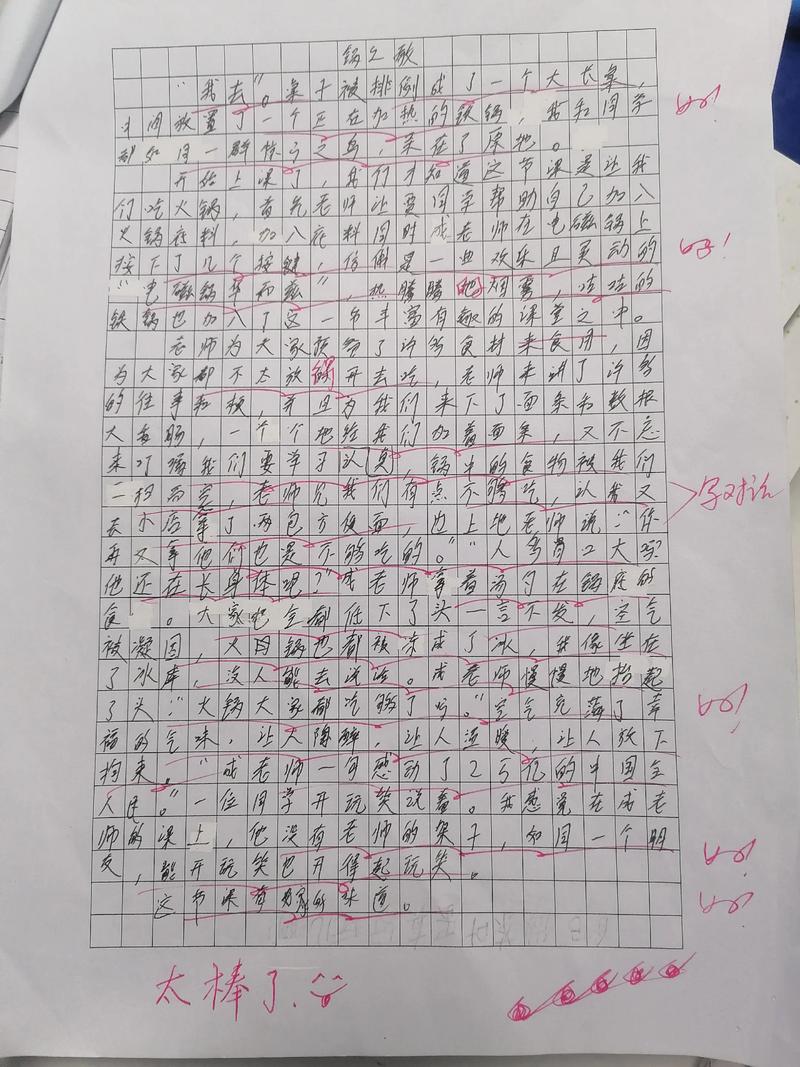 锅之敵
"我去"。桌子被排例成了一个大长桌，
中间放置了一个正在加热的铁锅，我和同学
都如同一群惊弓之鸟，呆在了原地。
开始上课了，我们才知道这节课是让我
们吃火锅，首先老师让要同学帮助自己加入
火锅底料，加入底料同时成老师在电磁锅上
按下了几个按键，仿佛是一曲欢乐且灵动的
"电磁锅华而兹"，热腾腾地烟雾，咕咕的
铁锅也加入了这一节丰富有趣的课堂之中。
老师为大家预备了许多食材来食用，因
为大家都不太放得开去吃，老师来讲了许多
的往事和梗，并且为我们来下了面条和数根
大香肠，一个个地给我们加着面条，又不忘
来叮嘱我们要学习认真，锅中的食物被我们
一扫而空，老师见我们有点不够吃，让我又
去小店拿了两包方便面，边上地老师说："你
再又拿他们也是不够吃的。""人多胃口大吗？
他还在长身体呢？"成老师拿着汤勺在锅底的
食。大家吧全都低下了头一言不发，空气
被凝固，火焰锅也都被冻成了冰，我像坐在
了冰库，没人能去说话。成老师慢慢地抬起
了头："火锅大家都吃够了吗。"空气充满了幸
福的气味，让大陶醉，让人温暖，让人放下
拘束。"成老师一句感动了25亿的中国全
人民。"一位同学开玩笑说着。我感觉在成老
师的课上，他没有老师的架子，如同一个朋
友，能开玩笑也开得起玩笑。
这节课有好的味道。
好！
好！
写对话
好！
好！
好！
太棒了.